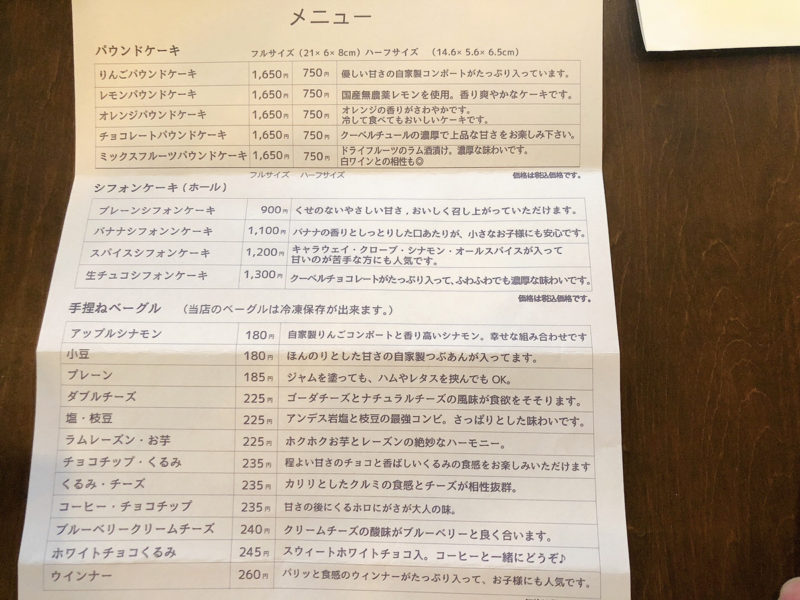 メニュー
パウンドケーキ フルサイズ（21× 6× 8cm）ハーフサイズ （14.6× 5.6× 6.5cm）
りんごパウンドケーキ 1,650円 750円 優しい甘さの自家製コンポートがたっぷり入っています。
レモンパウンドケーキ 1,650円 750円 国産無農薬レモンを使用。香り爽やかなケーキです。
オレンジパウンドケーキ 1,650円 750円 オレンジの香りがさわやかです。
冷して食べてもおいしいケーキです。
チョコレートパウンドケーキ 1,650円 750円 クーベルチュールの濃厚で上品な甘さをお楽しみ下さい。
ミックスフルーツパウンドケーキ 1,650円 750円 ドライフルーツのラム酒漬け。濃厚な味わいです。
白ワインとの相性も◎
フルサイズ ハーフサイズ 価格は税込価格です。
シフォンケーキ（ホール）
プレーンシフォンケーキ 900円 くせのないやさしい甘さ，おいしく召し上がっていただけます。
バナナシフォンンケーキ 1,100円 バナナの香りとしっとりした口あたりが、小さなお子様にも安心です。
スパイスシフォンケーキ 1,200円 キャラウェイ・クローブ・シナモン・オールスパイスが入って
甘いのが苦手な方にも人気です。
生チョコシフォンケーキ 1,300円 クーベルチョコレートがたっぷり入って、ふわふわでも濃厚な味わいです。
価格は税込価格です。
手捏ねベーグル （当店のベーグルは冷凍保存が出来ます。）
アップルシナモン 180円 自家製りんごコンポートと香り高いシナモン。幸せな組み合わせです
小豆 180円 ほんのりとした甘さの自家製つぶあんが入ってます。
プレーン 185円 ジャムを塗っても、ハムやレタスを挟んでも OK。
ダブルチーズ 225円 ゴーダチーズとナチュラルチーズの風味が食欲をそそります。
塩・枝豆 225円 アンデス岩塩と枝豆の最強コンビ。さっぱりとした味わいです。
ラムレーズン・お芋 225円 ホクホクお芋とレーズンの絶妙なハーモニー。
チョコチップ・くるみ 235円 程よい甘さのチョコと香ばしいくるみの食感をお楽しみいただけます
くるみ・チーズ 235円 カリリとしたクルミの食感とチーズが相性抜群。
コーヒー・チョコチップ 235円 甘さの後にくるホロにがさが大人の味。
ブルーベリークリームチーズ 240円 クリームチーズの酸味がブルーベリーと良く合います。
ホワイトチョコくるみ 245円 スウィートホワイトチョコ入。コーヒーと一緒にどうぞ♪
ウインナー 260円 パリッと食感のウィンナーがたっぷり入って、お子様にも人気です。